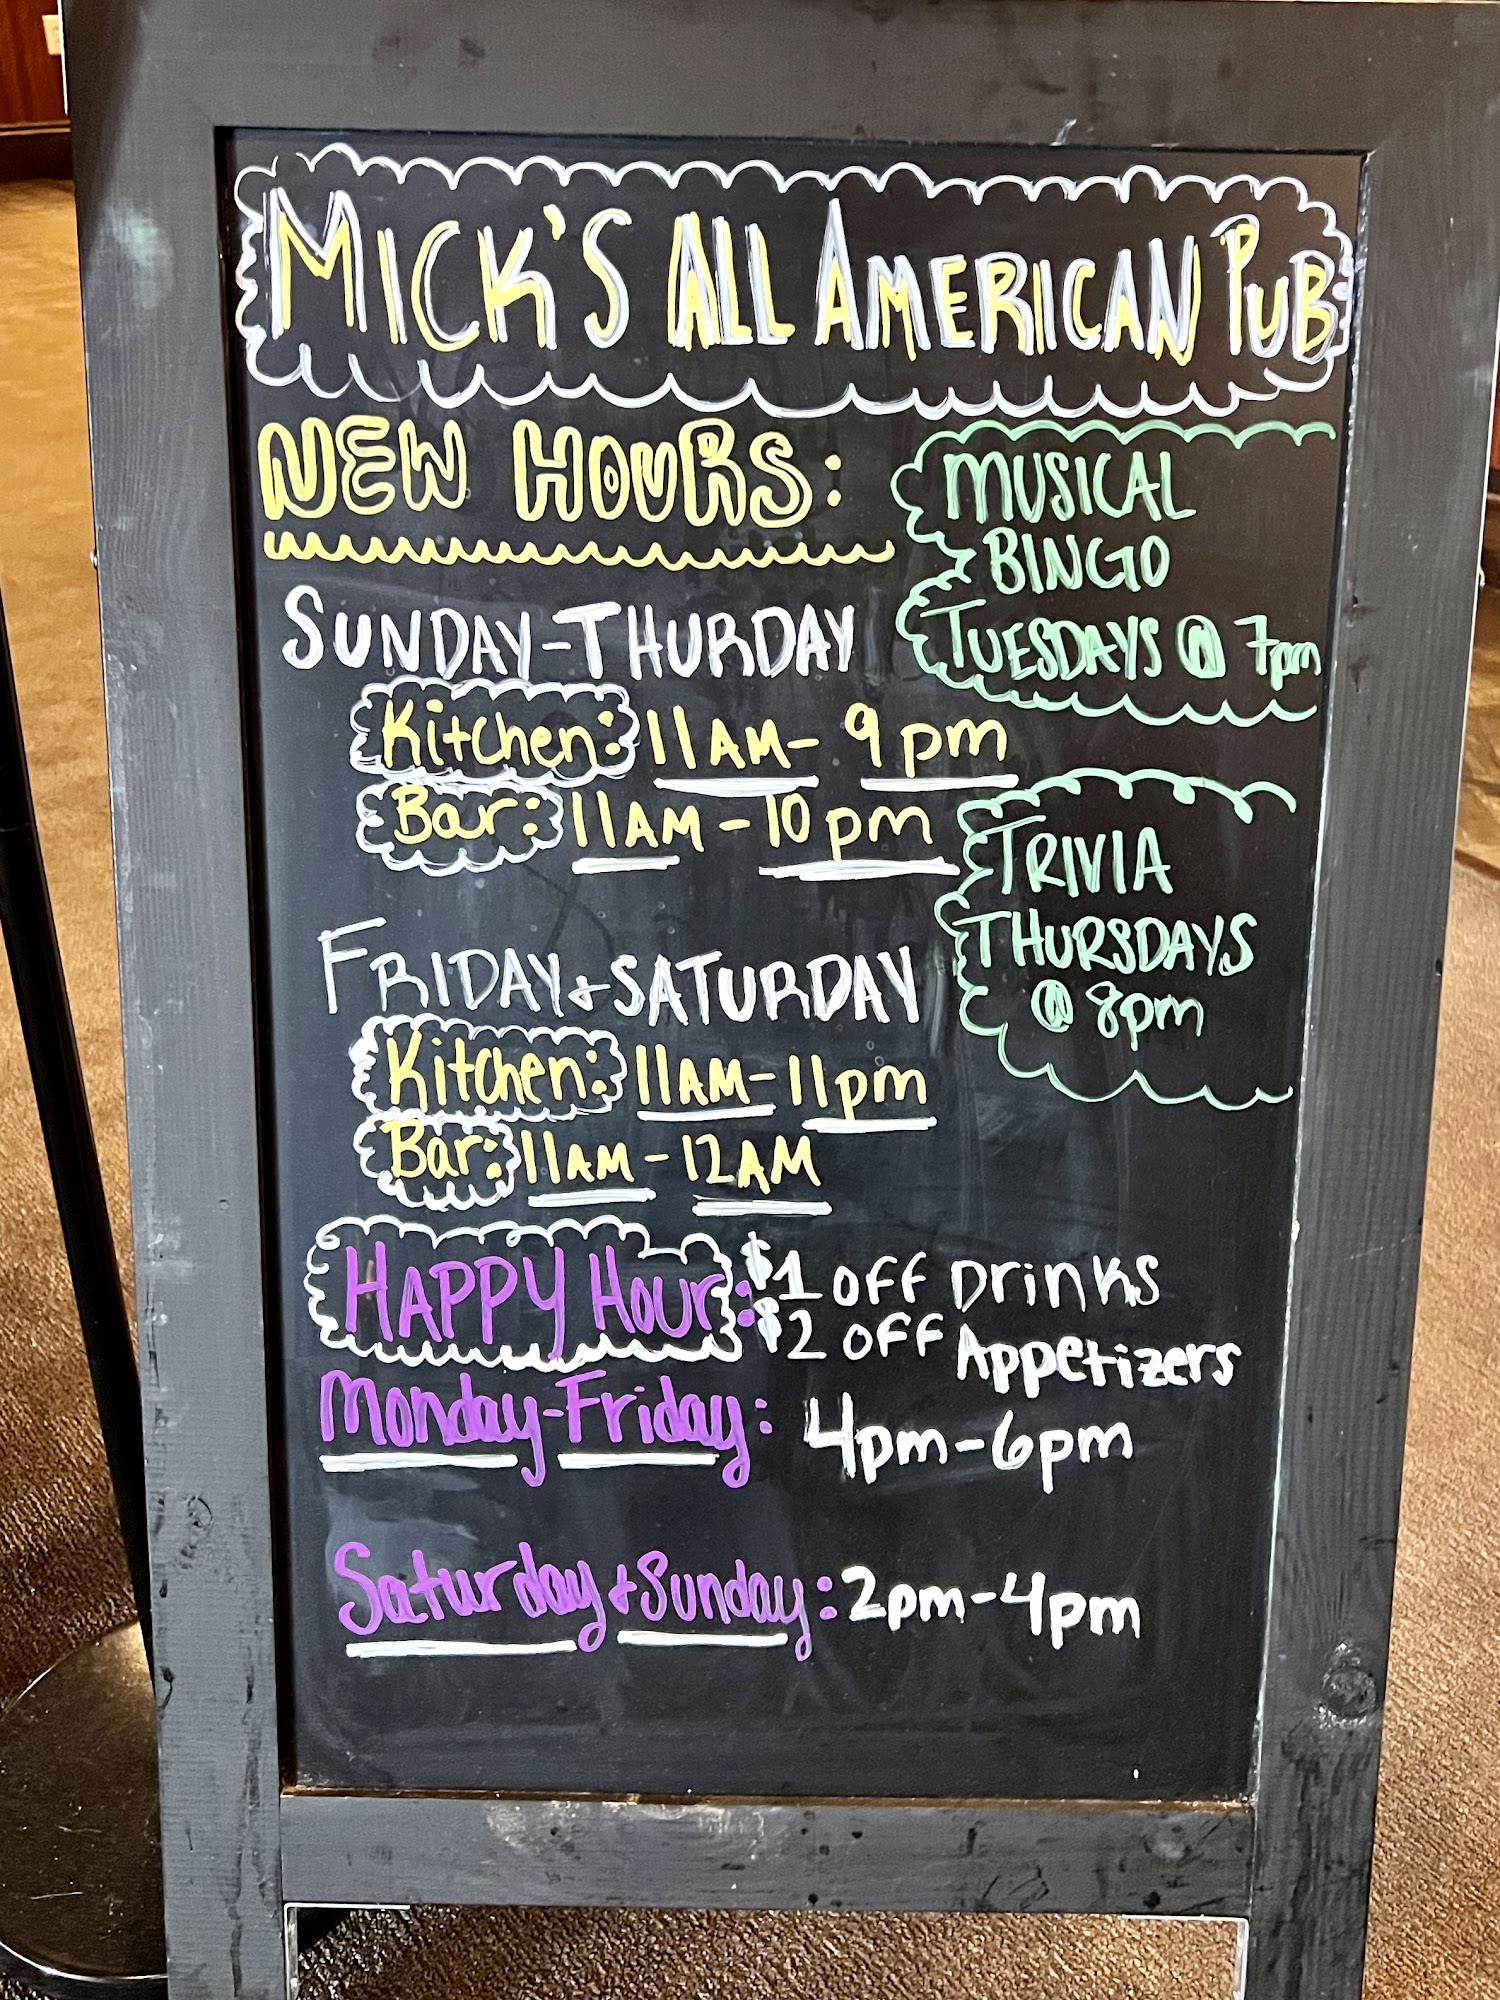 MICK'S ALL AMERICAN PUB
NEW HOURS:
SUNDAY-THURDAY
Kitchen: 11AM- 9pm
Bar: 11AM - 10pm
FRIDAY + SATURDAY
Kitchen: 11AM-11pm
Bar: 11AM - 12AM
MUSICAL
BINGO
TUESDAYS @ 7pm
TRIVIA
THURSDAYS
@ 8pm
HAPPY HOUR: $1 OFF Drinks
$2 OFF Appetizers
Monday-Friday: 4pm-6pm
Saturday + Sunday: 2pm-4pm